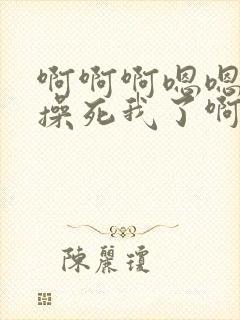 啊啊啊嗯嗯
操死我了啊
陳麗瓊